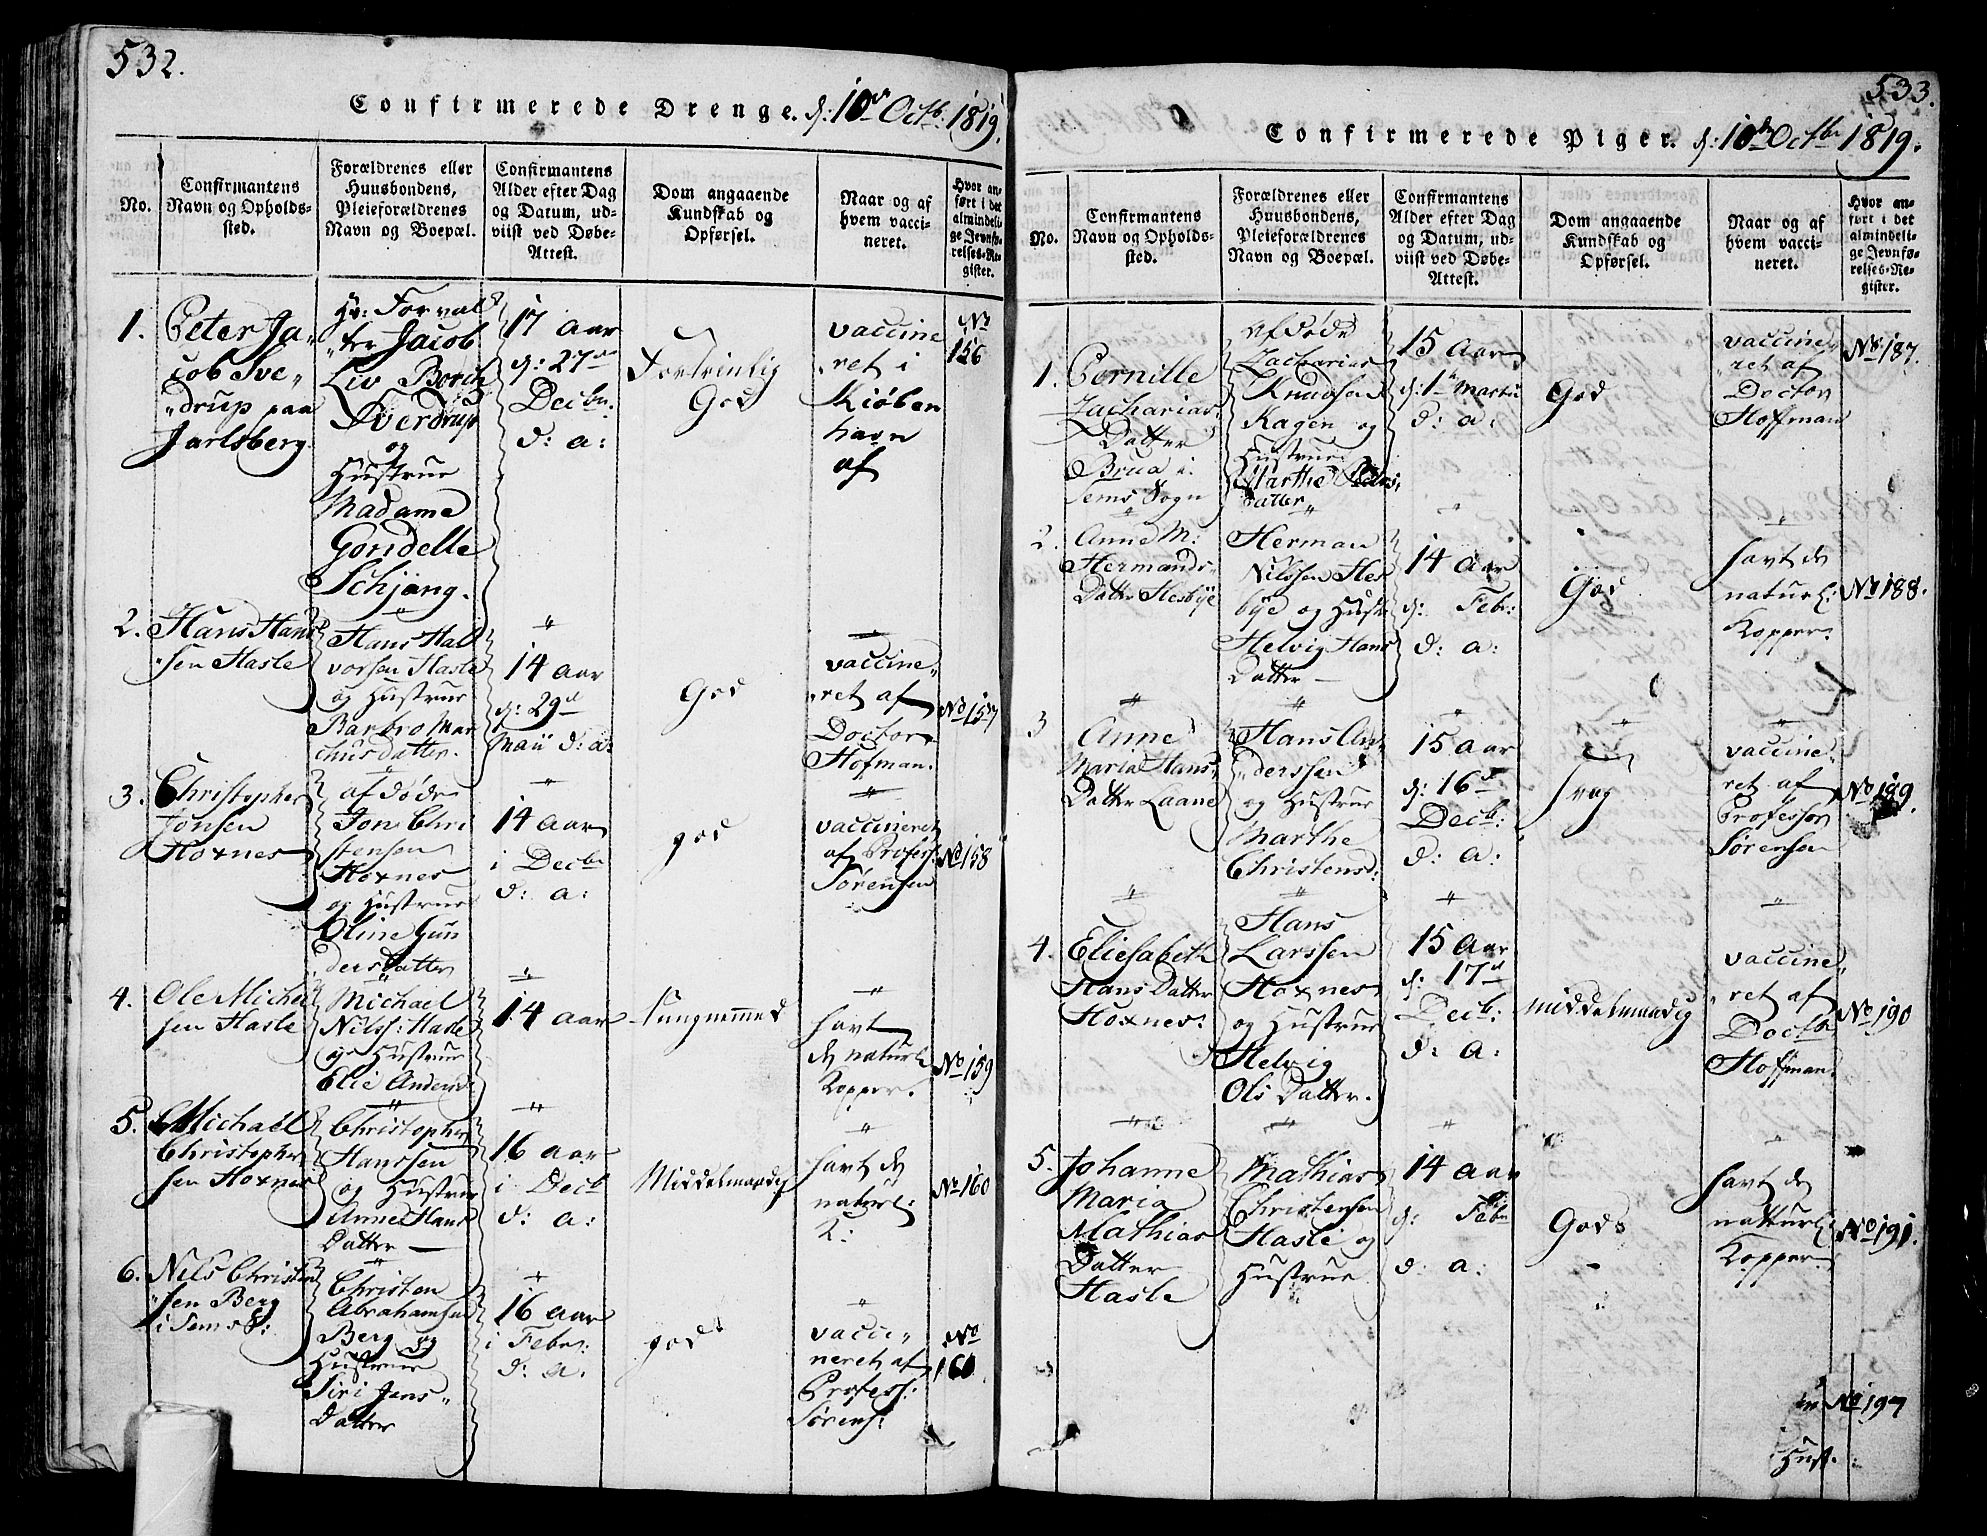 532.
Confirmerede Drenge. d: 10de Octb: 1819.
No.
Confirmantens
Navn og Opholds-
sted.
Forældrenes eller
Huusbondens,
Pleieforældrenes
Navn og Boepæl.
Confirmantens
Alder efter Dag
og Datum, ud-
viist ved Døbe-
Attest.
Dom angaaende
Kundskab og
Opførsel.
Naar og af
hvem vacci-
neret.
Hvor an-
ført i det
almindeli-
ge Jevnfø-
relses-Re-
gister.
1.
Peter Ja-
cob Sve-
drup paa
Jarlsberg.
Hr: Forval
ter Jacob
Liv Borch
Sverdrup
og
Hustrue
Madame
Gondelle
Schjøng.
17 Aar
d: 27de
Decbr.
d: a:
Fortrinlig
God
vaccine
ret i
Kiøben
havn
af
No
156
2.
Hans Hans
sen Hasle
Hans Hal
vorsen Hasle
og Hustrue
Barbro Mar
chusdatter.
14 Aar
d: 29d
Maii d: a:
God
vaccine-
ret af
Doctor
Hofman.
No 157
3.
Christopher
Jonsen
Hoxnes
afdøde
Jon Chri
stensen
Hoxnes
og Hustrue
Oline Gun
dersdatter
14 Aar
i Decbr
d: a:
god
vaccineret
af Profess:
Sørensen
No 158
4.
Ole Michel
sen Hasle
Michael
Nilss: Hasle
og Hustrue
Elie Andersd:
14 Aar
tungnemmed
havt
de naturl:
Kopper.
No 159
5.
Michael
Christopher
sen Hoxnes
Christopher
Hanssen
og Hustrue
Anne Hans
Datter
16 Aar
i Decb
d: a:
Middelmaadig
havt de
naturl:
K:
No 160
6.
Nils Christen
sen Berg
i Sem S:
Christen
Abrahamsen
Berg og
Hustrue
Siri Jens-
Datter
16 Aar
i Febr:
d: a:
god
vacci-
neret af
Profess:
Sørens:
No
160
533.
Confirmerede Piger. d: 10de Octbr 1819.
No.
Confirmantens
Navn og Opholds-
sted.
Forældrenes eller
Huusbondens,
Pleieforældrenes
Navn og Boepæl.
Confirmantens
Alder efter Dag
og Datum, ud-
viist ved Døbe-
Attest.
Dom angaaende
Kundskab og
Opførsel.
Naar og af
hvem vacci-
neret.
Hvor an-
ført i det
almindeli-
ge Jevnfø-
relses-Re-
gister.
1.
Pernille
Zacharias
Datter
Brua i
Sems Sogn
Afdøde
Zacharias
Knudsen
Kagen og
Hustrue
Marthe Peders
Datter
15 Aar
d: 1te Martii
d: a:
God
vaccine-
ret af
Doctor
Hoffman
No 187.
2.
Anne M:
Hermands
Datter Hesbye
Herman
Nilssen Hes
bye og Hustr
Helvig Hans
Datter
14 Aar
d: Febr:
d: a:
God
havt de
naturl:
Kopper.
No 188.
3
Anne
Maria Hans
Datter Laane
Hans An
derssen
og Hustrue
Marthe
Christensd:
15 Aar
d: 16d
Decb:
d: a:
svag
vaccine-
ret af
Professor
Sørensen
No 189.
4.
Eliesabeth
Hans Datter
Hoxnes.
Hans
Larssen
Hoxnes
og Hustrue
Helvig
Ols Datter.
15 Aar
d: 17d
Decb:
d: a:
middelmaadig
vaccine-
ret af
Doctor
Hoffman
No 190
5.
Johanne
Maria
Mathias
Datter
Hasle
Mathias
Christensen
Hasle og
Hustrue
14 Aar
d: Febr
d: a:
God
havt de
natturl:
Kopper
No 191.
No 197
Hust.